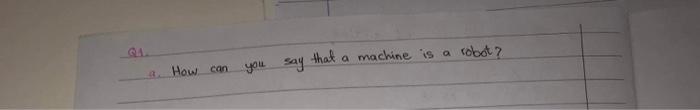 Q1.
a. How can you say that a machine is a robot?